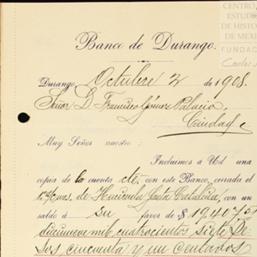 CENTRO
ESTUD
DE HISTOR
DE MEXIC
FUNDAC
Carlos S
Banco de Durango.
Durango, Octubre 2 de 1908.
Señor D. Francisco Gómez Palacio,
Ciudad
Muy Señor nuestro:
Incluimos á Ud
copia de la cuenta cte. con este Banco, cerrada el
de Hacienda Santa Catalina, con un
saldo á su favor de $19,417.51
diecinueve mil cuatrocientos siete pe
sos cincuenta y un centavos